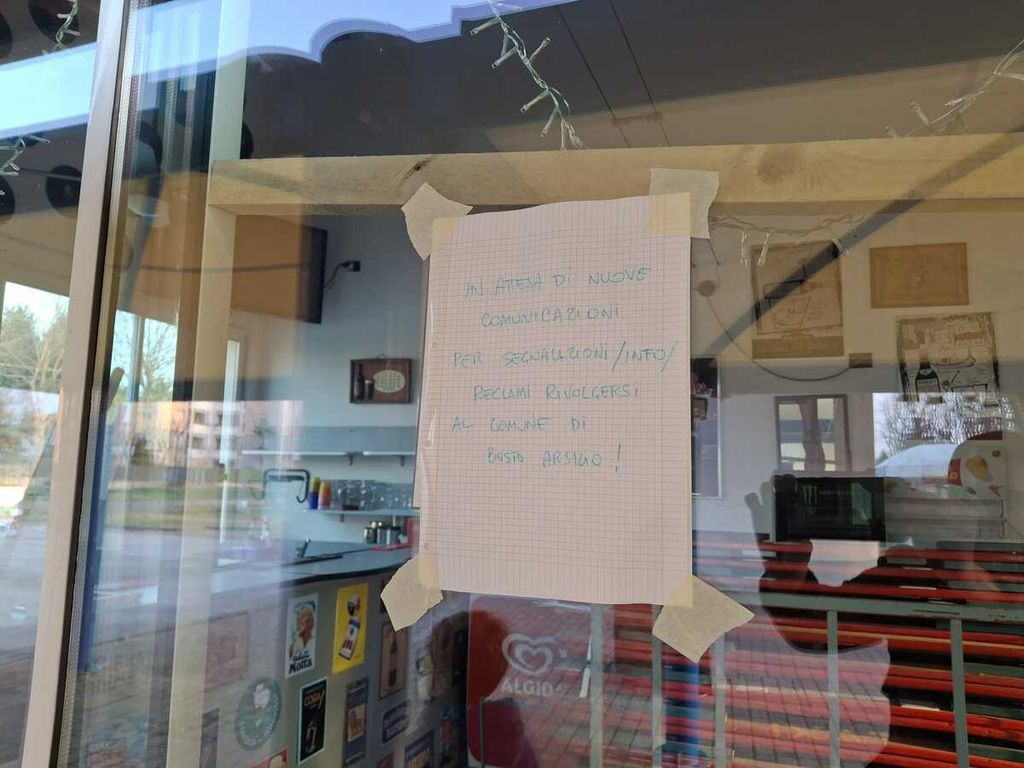 IN ATTESA DI NUOVE
COMUNICAZIONI
PER SEGNALAZIONI/INFO/
RECLAMI RIVOLGERSI
AL COMUNE DI
BUSTO ARSIZIO!
Motta
ALGIDA